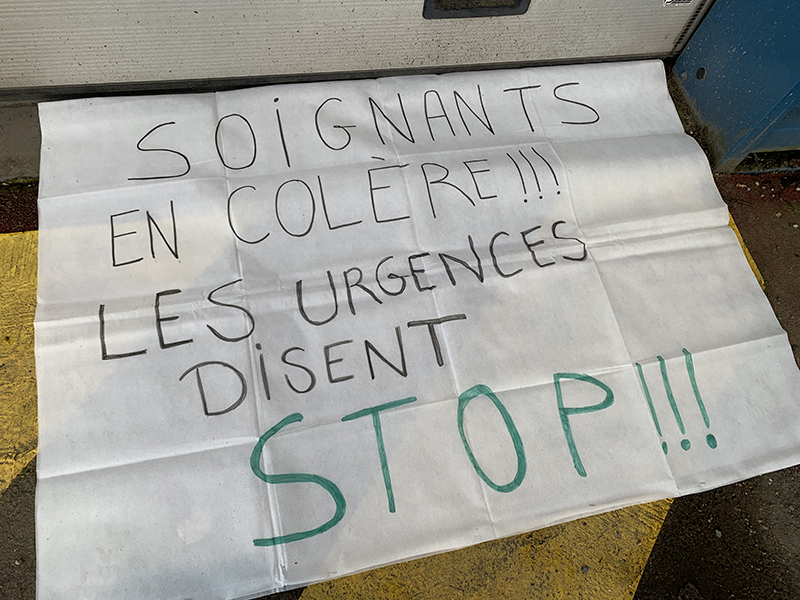 SOIGNANTS
EN COLÈRE!!!
LES URGENCES
DISENT
STOP!!!